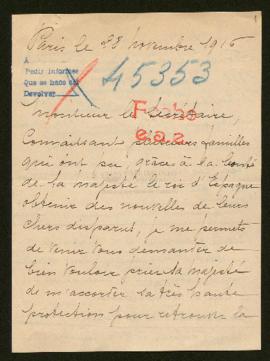 Paris le 28 novembre 1916
A
Pedir informes
Que se hace
Devolver
45353
Monsieur le Secrétaire,
Fecho
Connaissant plusieurs familles
qui ont su, grâce à la bonté
de sa majesté le roi d'Espagne
obtenir des nouvelles de leurs
chers disparut, je me permets
de venir vous demander de
bien vouloir prier sa majesté
de m'accorter sa très haute
protection pour retrouver la